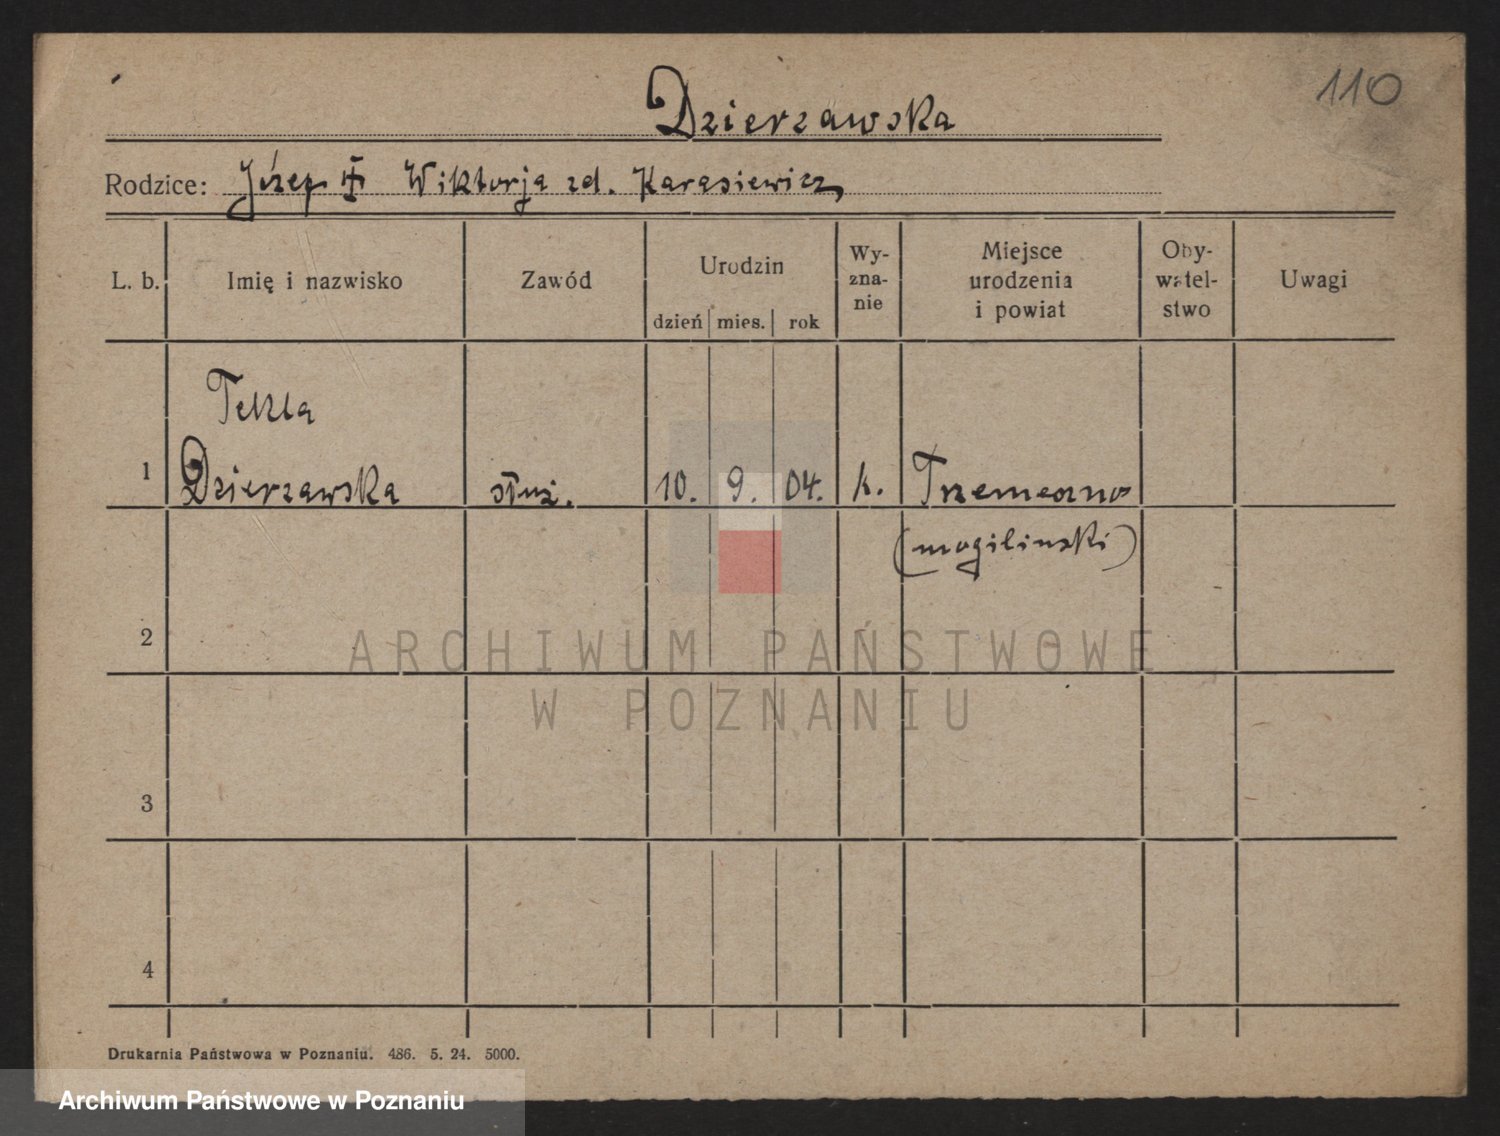 110
Dzierzawska
Rodzice: Józef Wiktorja zd. Karasiewicz,
L. b. Imię i nazwisko Zawód Urodzin Wyznanie Miejsce urodzenia i powiat Obywatelstwo Uwagi
dzień mies. rok
Tekla
1 Dzierzawska służ. 10. 9. 04. k. Trzemeszno
(mogilinski)
2
ARCHIWUM PAŃSTWOWE
W POZNANIU
3
4
Drukarnia Państwowa w Poznaniu. 486. 5. 24. 5000.
Archiwum Państwowe w Poznaniu